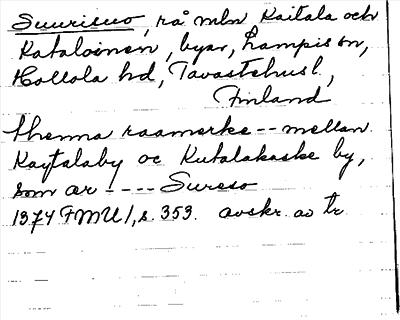 Suurisuo, rå mln Kaitala och
Kataloinen, byar, Lampis sn,
Hollola hd, Tavastehusl.,
Finland
thenna raamerke -- mellan
Kaytalaby oc Kutalakaske by,
som ær ---- Sureso
1374 FMU 1, s. 353. avskr. av tr